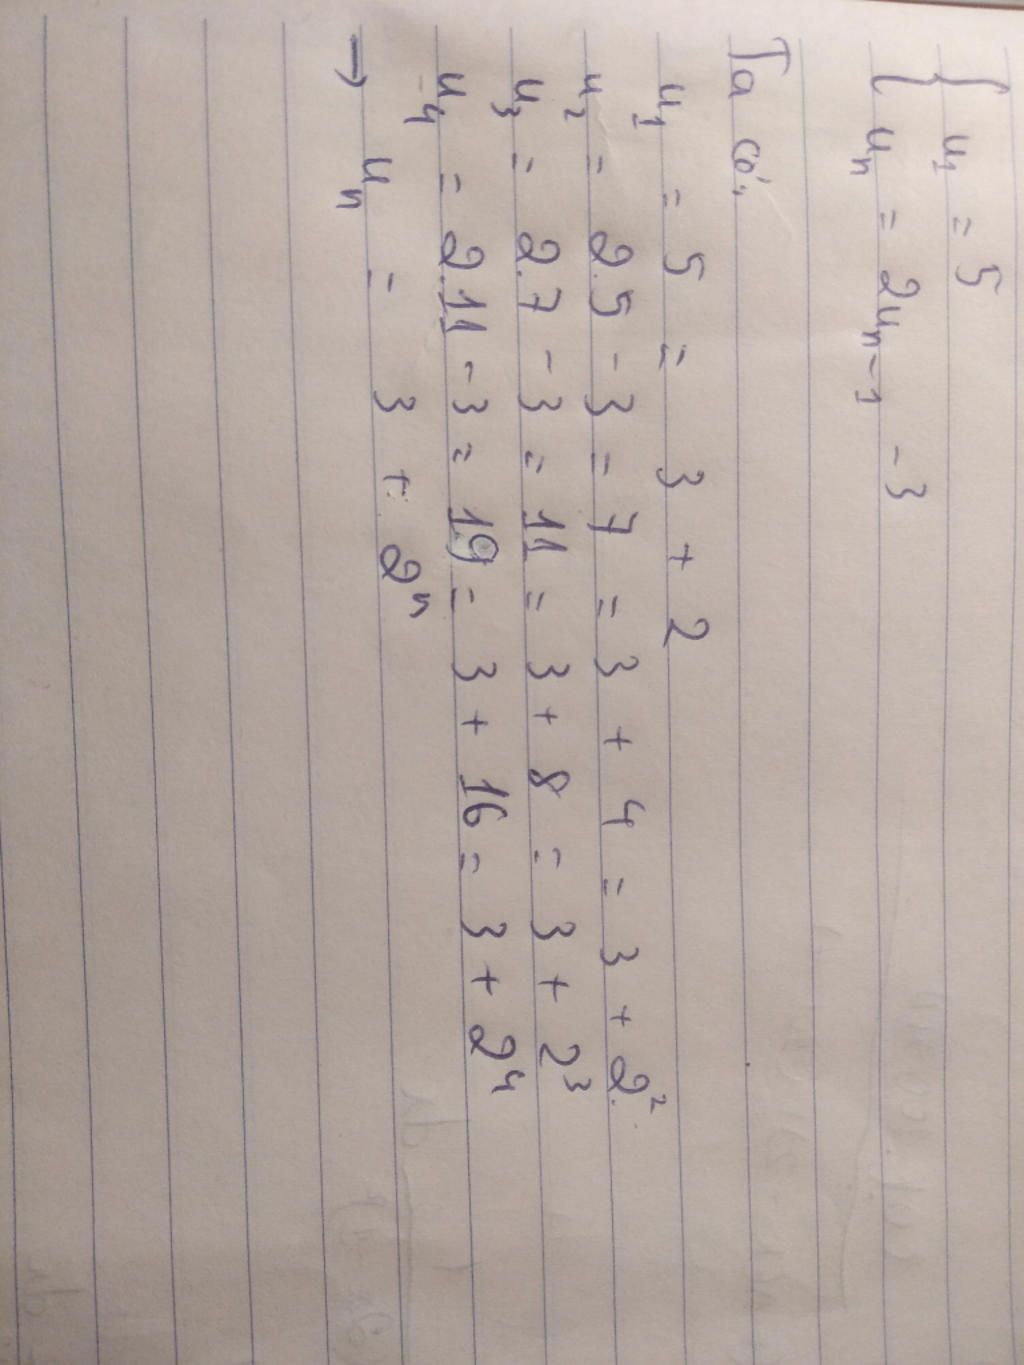 { u₁ = 5
{ uₙ = 2uₙ₋₁ - 3
Ta có:
u₁ = 5 = 3 + 2
u₂ = 2.5 - 3 = 7 = 3 + 4 = 3 + 2²
u₃ = 2.7 - 3 = 11 = 3 + 8 = 3 + 2³
u₄ = 2.11 - 3 = 19 = 3 + 16 = 3 + 2⁴
→ uₙ = 3 + 2ⁿ